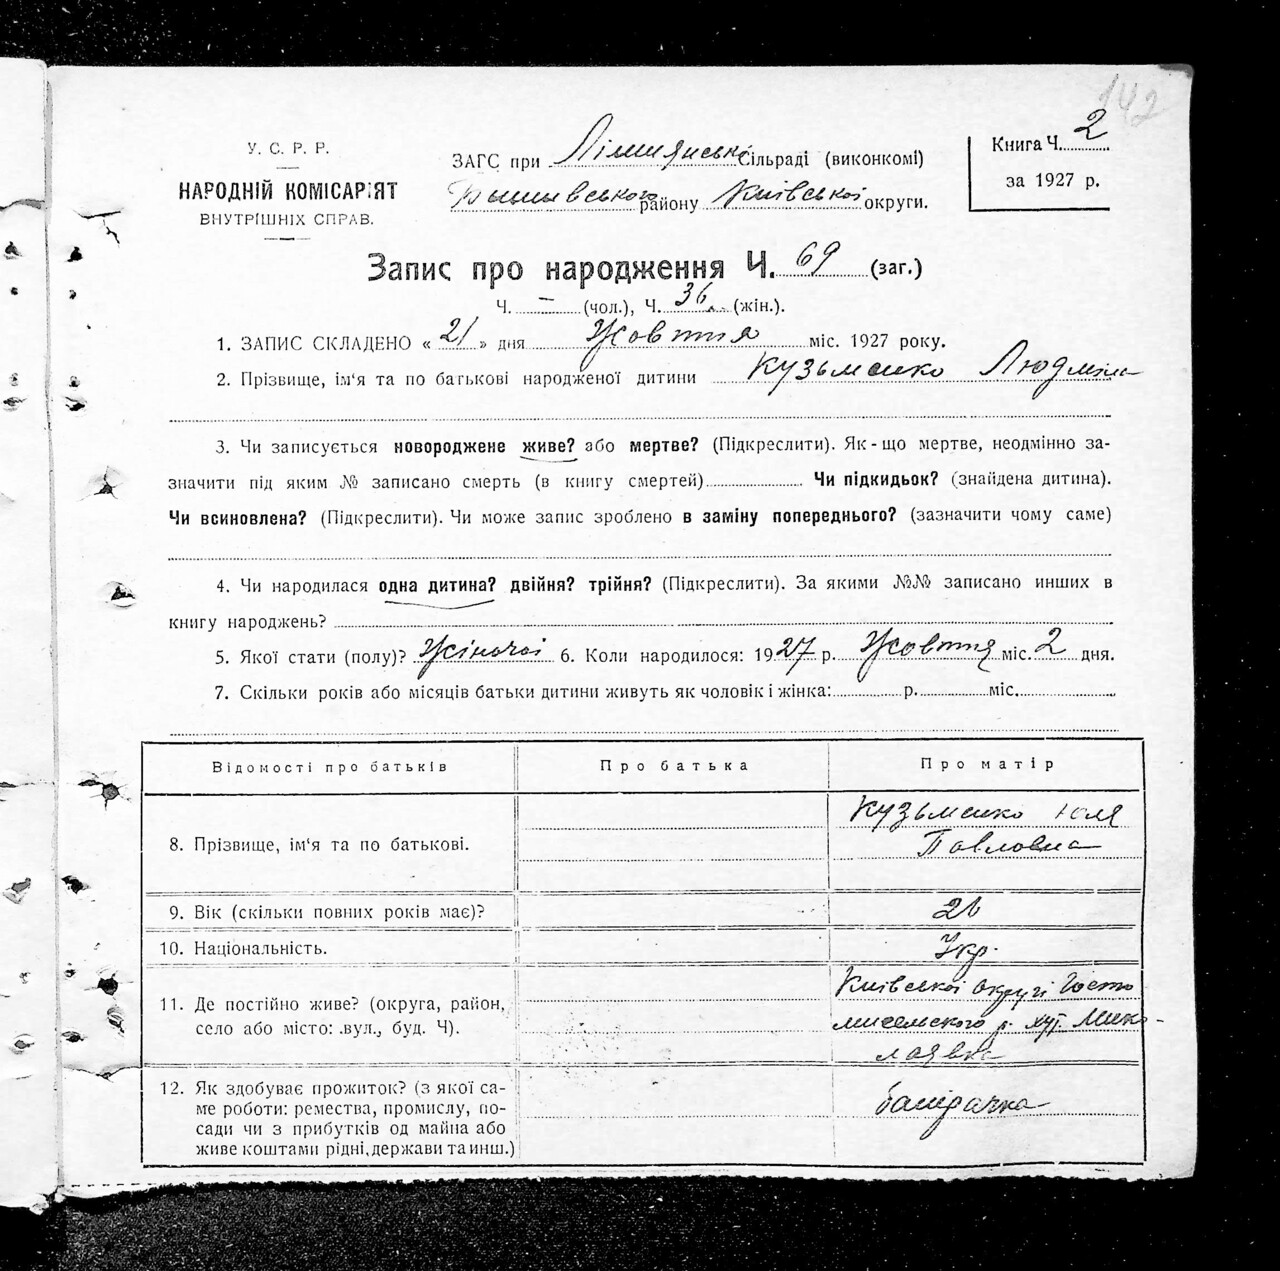 142
У. С. Р. Р.
НАРОДНІЙ КОМІСАРІЯТ
ВНУТРІШНІХ СПРАВ.
ЗАГС при Сільраді (виконкомі)
району Київської округи.
Книга Ч. 2
за 1927 р.
Запис про народження Ч. 69 (заг.)
Ч. – (чол.), Ч. 36 (жін.).
1. ЗАПИС СКЛАДЕНО « 21 » дня Жовтня міс. 1927 року.
2. Прізвище, ім'я та по батькові народженої дитини Кузьменко Людміла
3. Чи записується новороджене живе? або мертве? (Підкреслити). Як-що мертве, неодмінно за-
значити під яким № записано смерть (в книгу смертей) Чи підкидьок? (знайдена дитина).
Чи всиновлена? (Підкреслити). Чи може запис зроблено в заміну попереднього? (зазначити чому саме)
4. Чи народилася одна дитина? двійня? трійня? (Підкреслити). За якими №№ записано инших в
книгу народжень?
5. Якої стати (полу)? Жіночої 6. Коли народилося: 1927 р. Жовтня міс. 2 дня.
7. Скільки років або місяців батьки дитини живуть як чоловік і жінка: р. міс.
Відомості про батьків Про батька Про матір
8. Прізвище, ім'я та по батькові. Кузьменко Юля
Павловна
9. Вік (скільки повних років має)? 26
10. Національність. Укр.
11. Де постійно живе? (округа, район, Київської округі Госто
село або місто: вул., буд. Ч). мельського р. хут. Мико-
лаявка
12. Як здобуває прожиток? (з якої са-
ме роботи: ремества, промислу, по-
сади чи з прибутків од майна або
живе коштами рідні, держави та инш.) батрачка